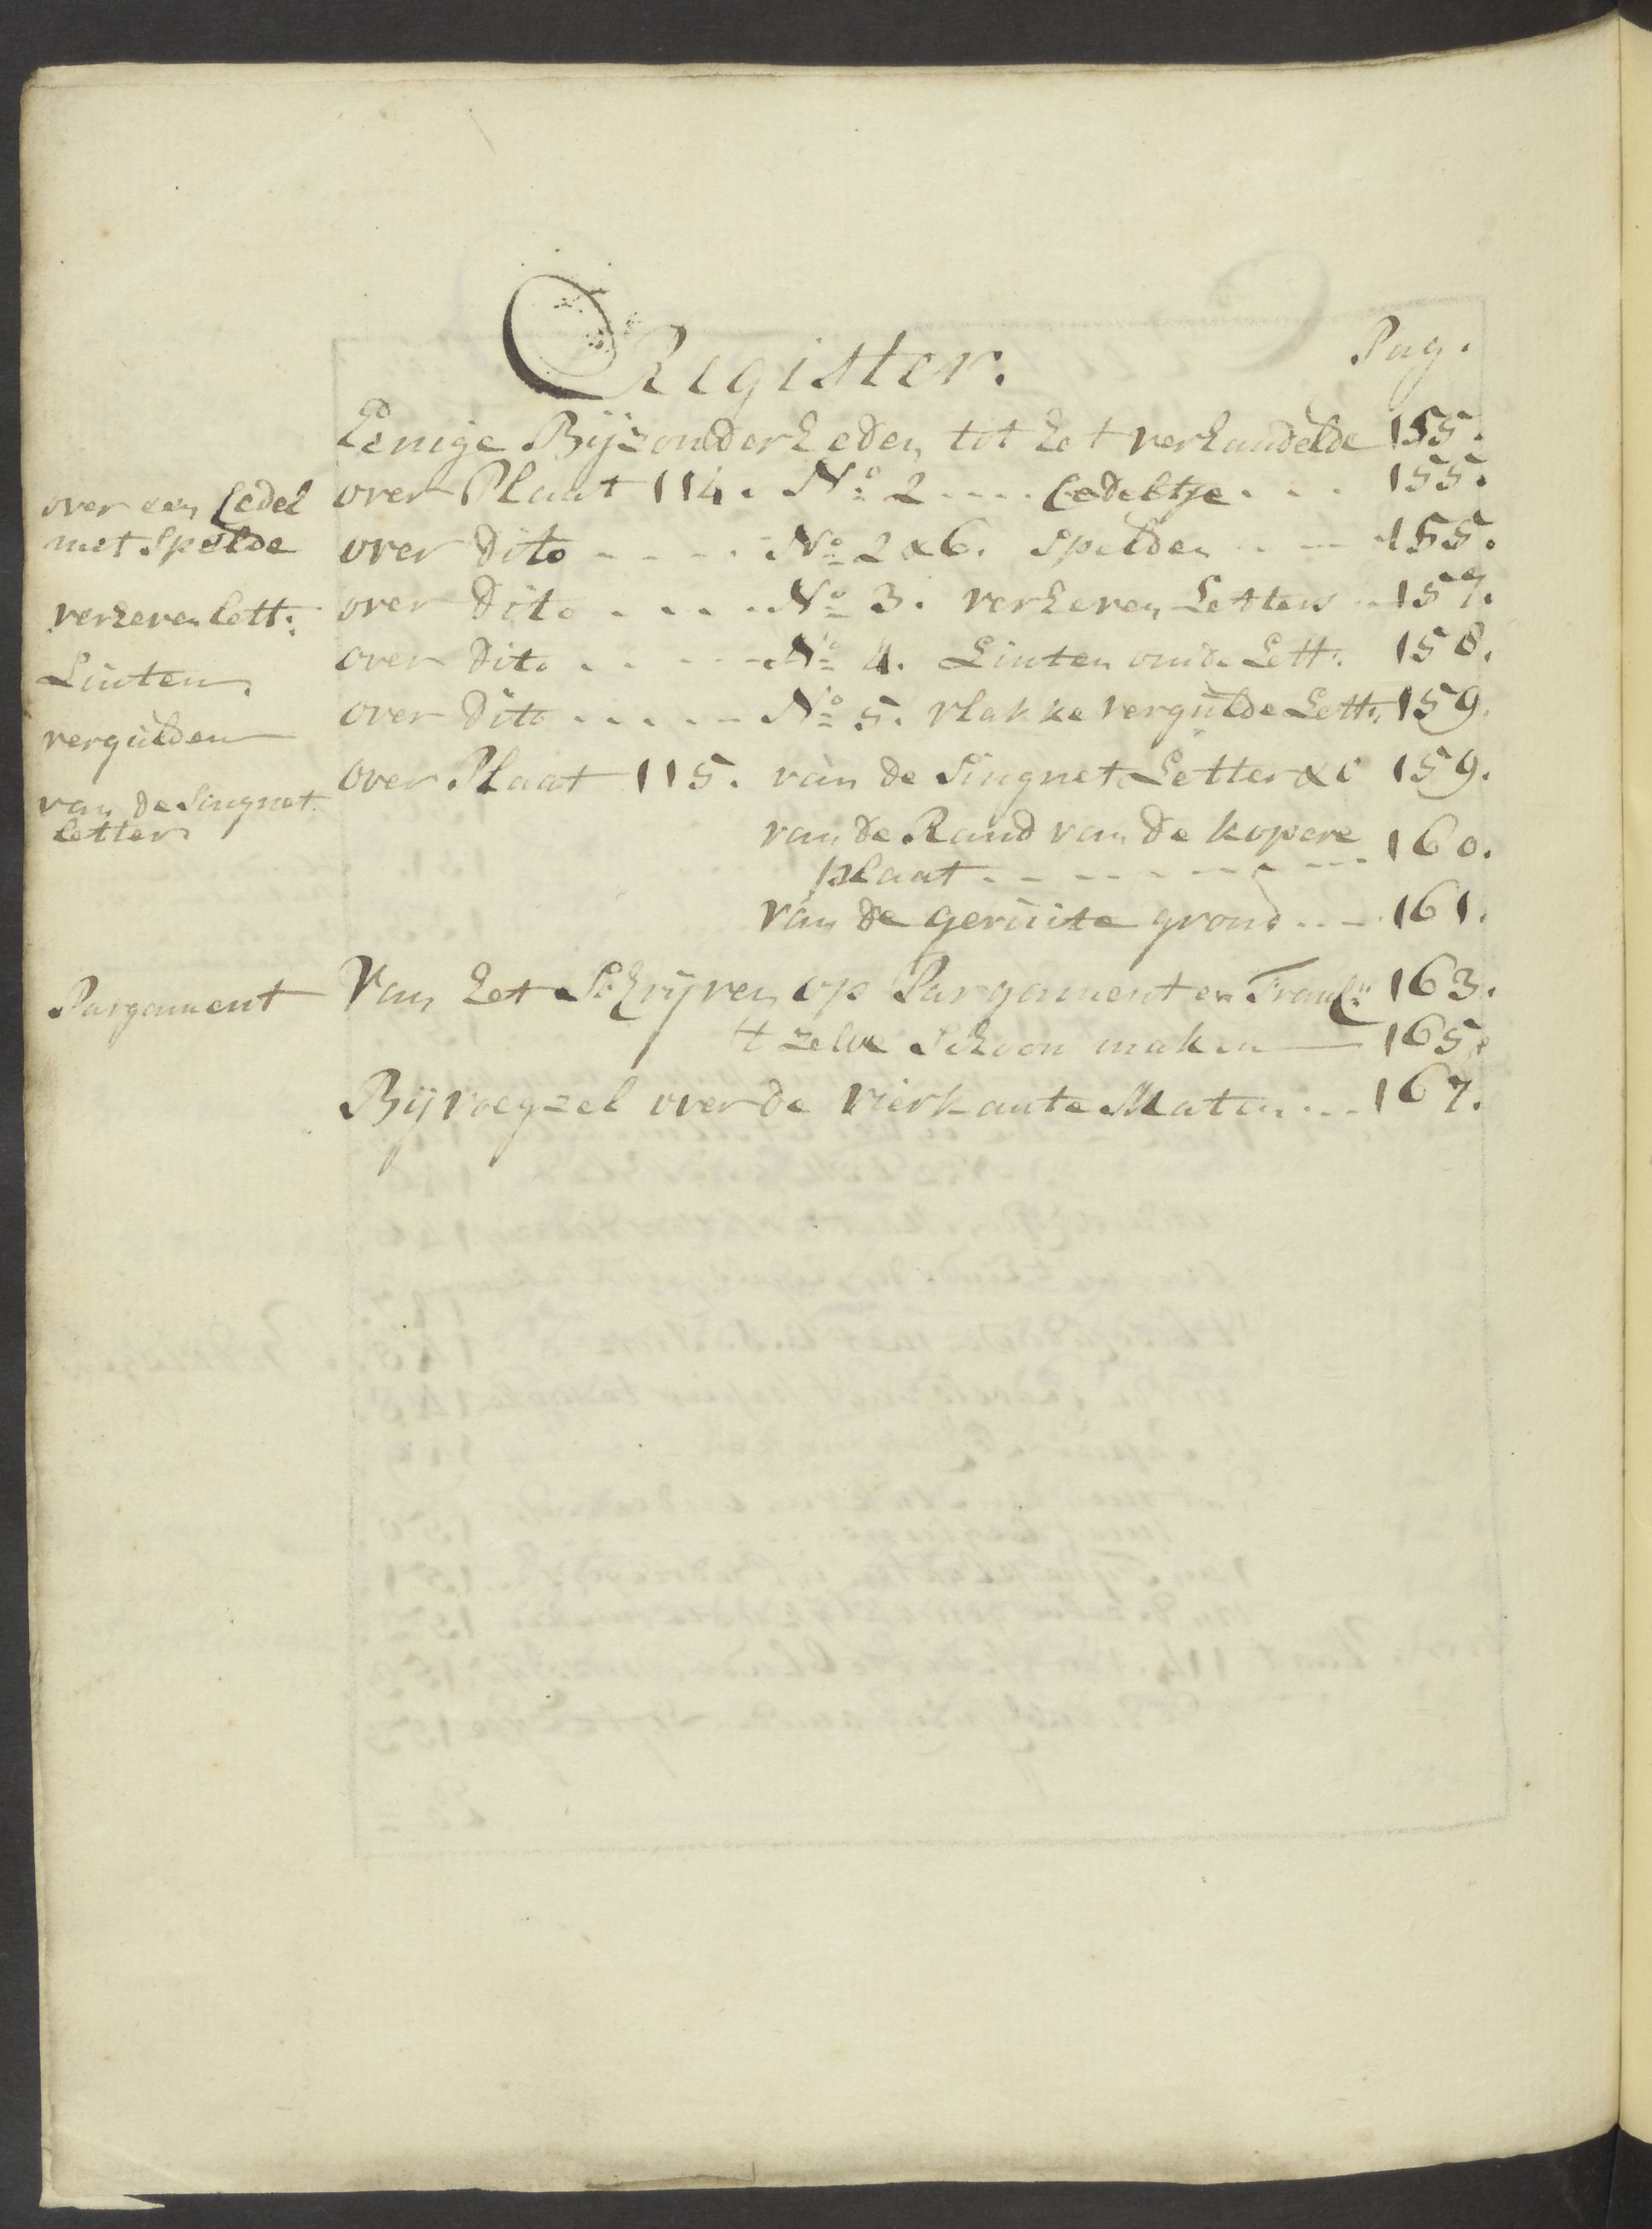 Register.
Pag.
Eenige Bijzonderheden tot het verhandelde 155.
over een Cedel
met Spelde
over Plaat 114. No. 2 .... Cedeltje . . . 155.
over Dito - - - - . No. 2 & 6. Spelden .. - 155.
verheven lett:
over Dito . . . . No. 3. verheven Letters .. 157.
Linten
over Dito . . - - - No. 4. Linten om de Lett: 158.
vergulden
over Dito . . . . . - No. 5. vlakke vergulde Lett: 159.
van de Singnet
letter
over Plaat 115. van de Singnet Letter &c 159.
van de Rand van de kopere
plaat - - - - - - - - - 160.
van de geruite grond .. - 161.
Pargament
Van het Schrijven op Pargament en 163.
't zelve Schoon maken 165.
Bijvoegzel over de vierkante Maten ... 167.